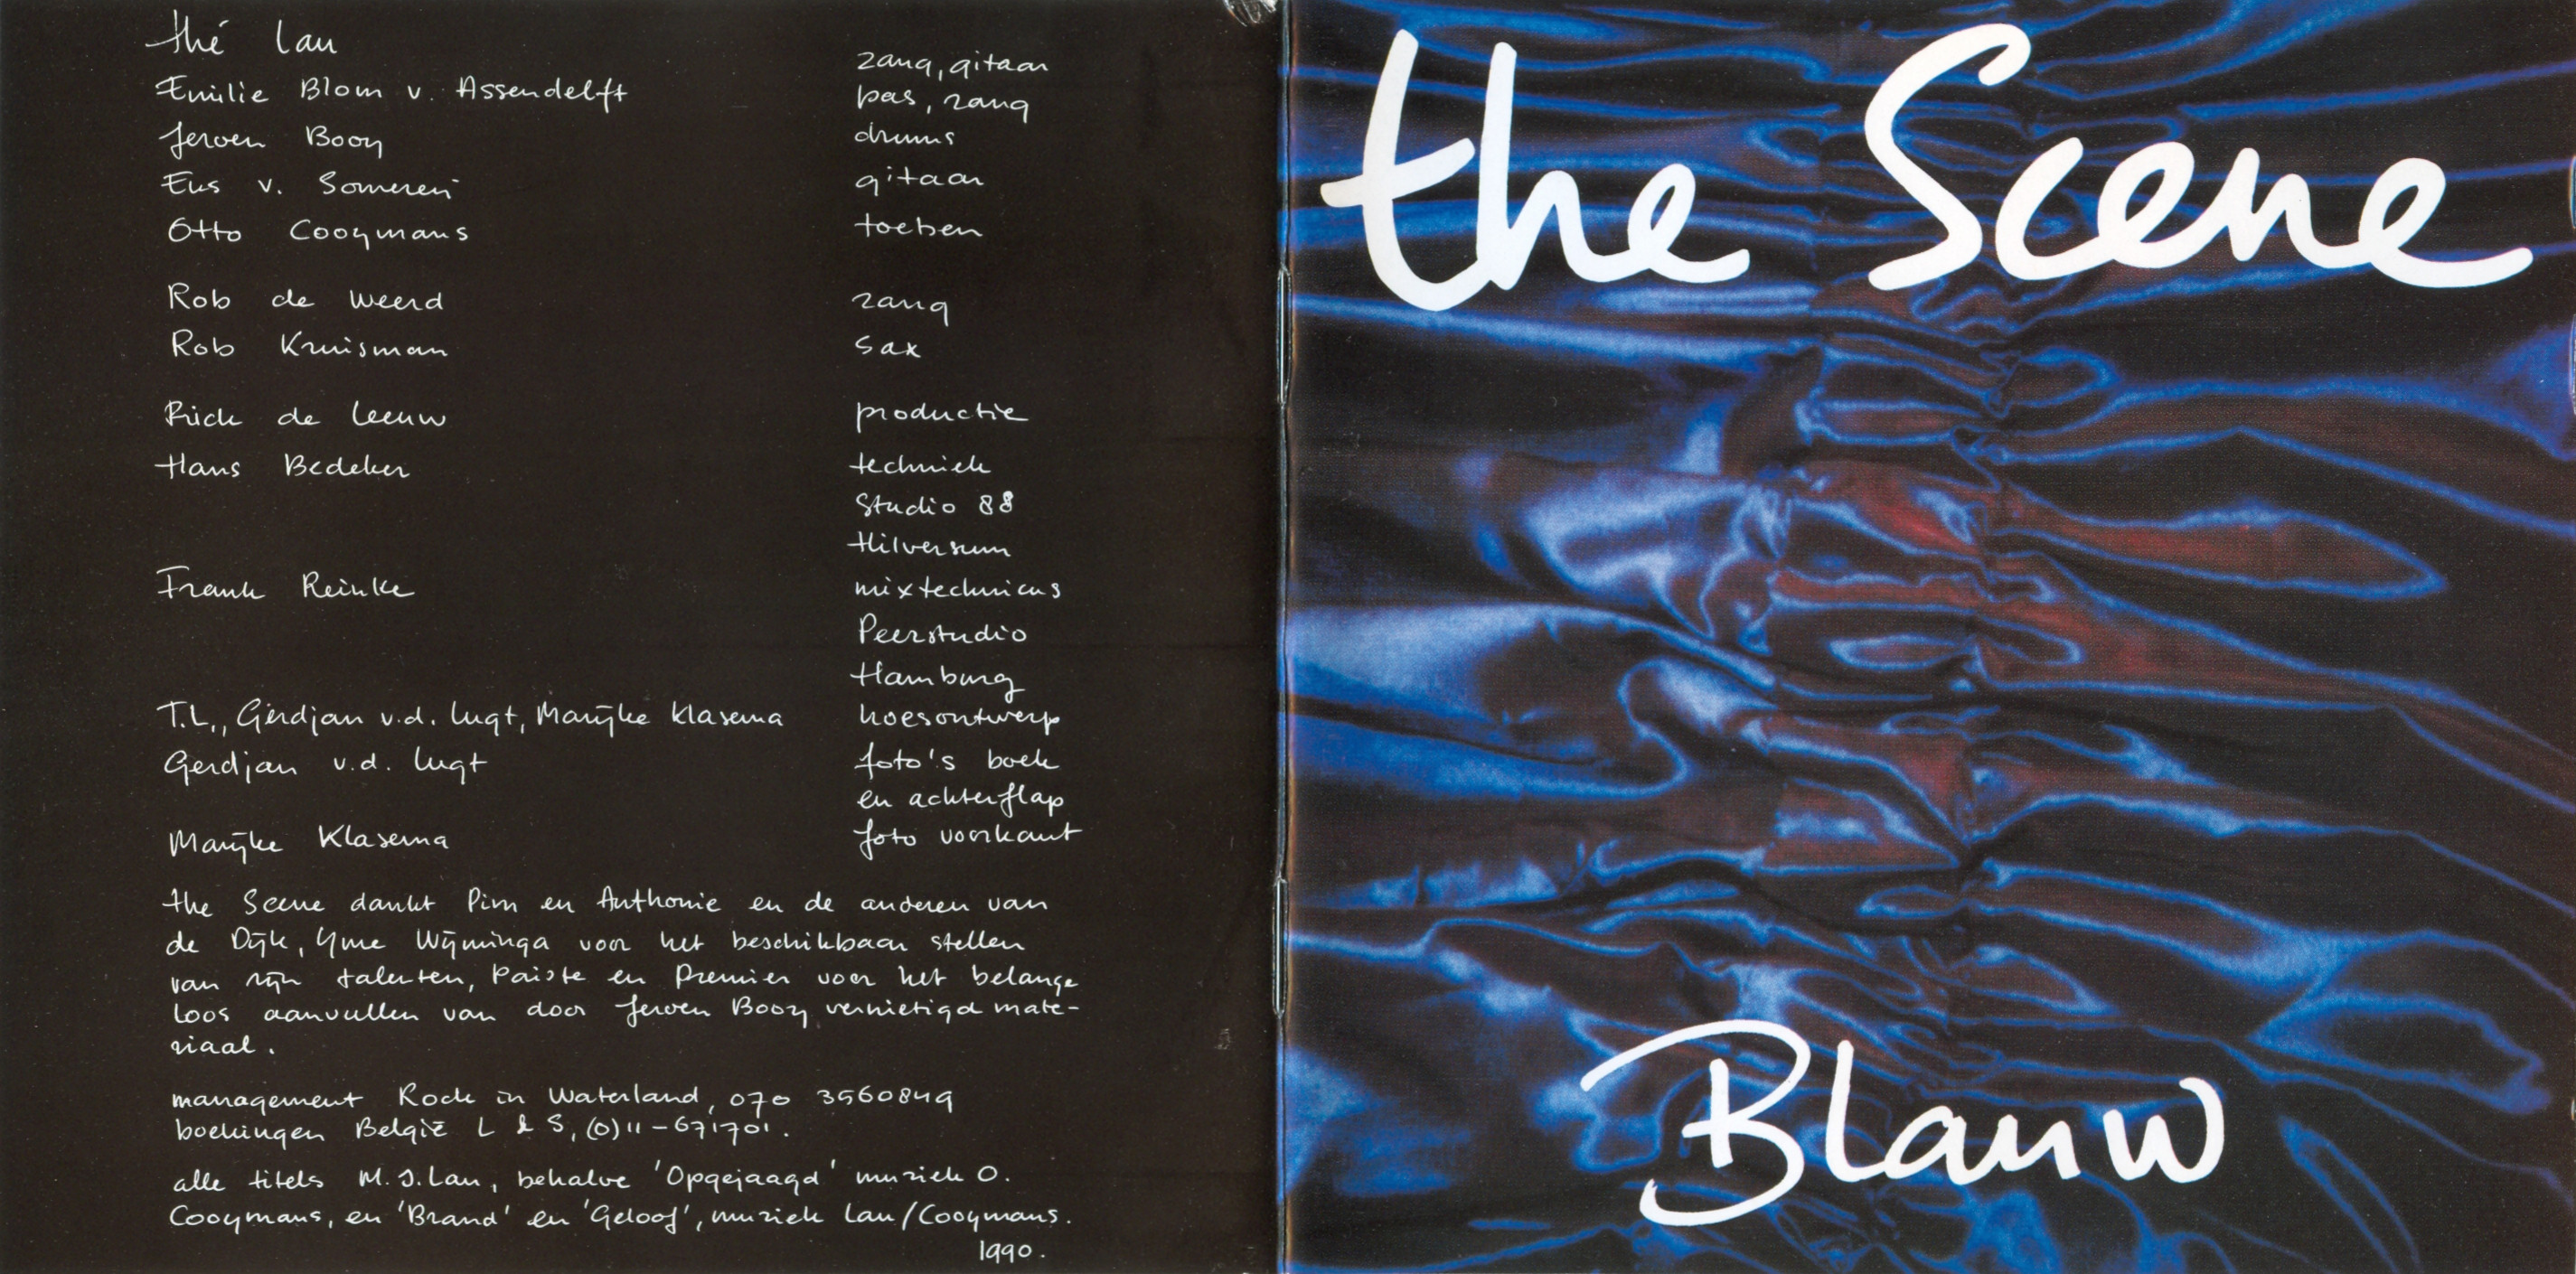 thé Lau zang, gitaar
Emilie Blom v. Assendelft bas, zang
Jeroen Booy drums
Eus v. Someren gitaar
Otto Cooymans toetsen
Rob de Weerd zang
Rob Kruisman sax
Rick de Leeuw productie
Hans Bedeker techniek
Studio 88
Hilversum
Frank Reinke mixtechnicus
Peerstudio
Hamburg
T.L., Gerdjan v.d. Lugt, Marijke Klasema hoesontwerp
Gerdjan v.d. Lugt foto's boek
en achterflap
Marijke Klasema foto voorkant
the Scene dankt Pim en Anthonie en de anderen van
de Dijk, Yme Wijminga voor het beschikbaar stellen
van zijn talenten, Paiste en Premier voor het belange
loos aanvullen van door Jeroen Booy vernietigd mate-
riaal.
management Rock in Waterland, 070 3560849
boekingen België L & S, (0)11-671701.
alle titels M.J. Lau, behalve 'Opgejaagd' muziek O.
Cooymans, en 'Brand' en 'Geloof', muziek Lau/Cooymans.
1990.
the Scene
Blauw